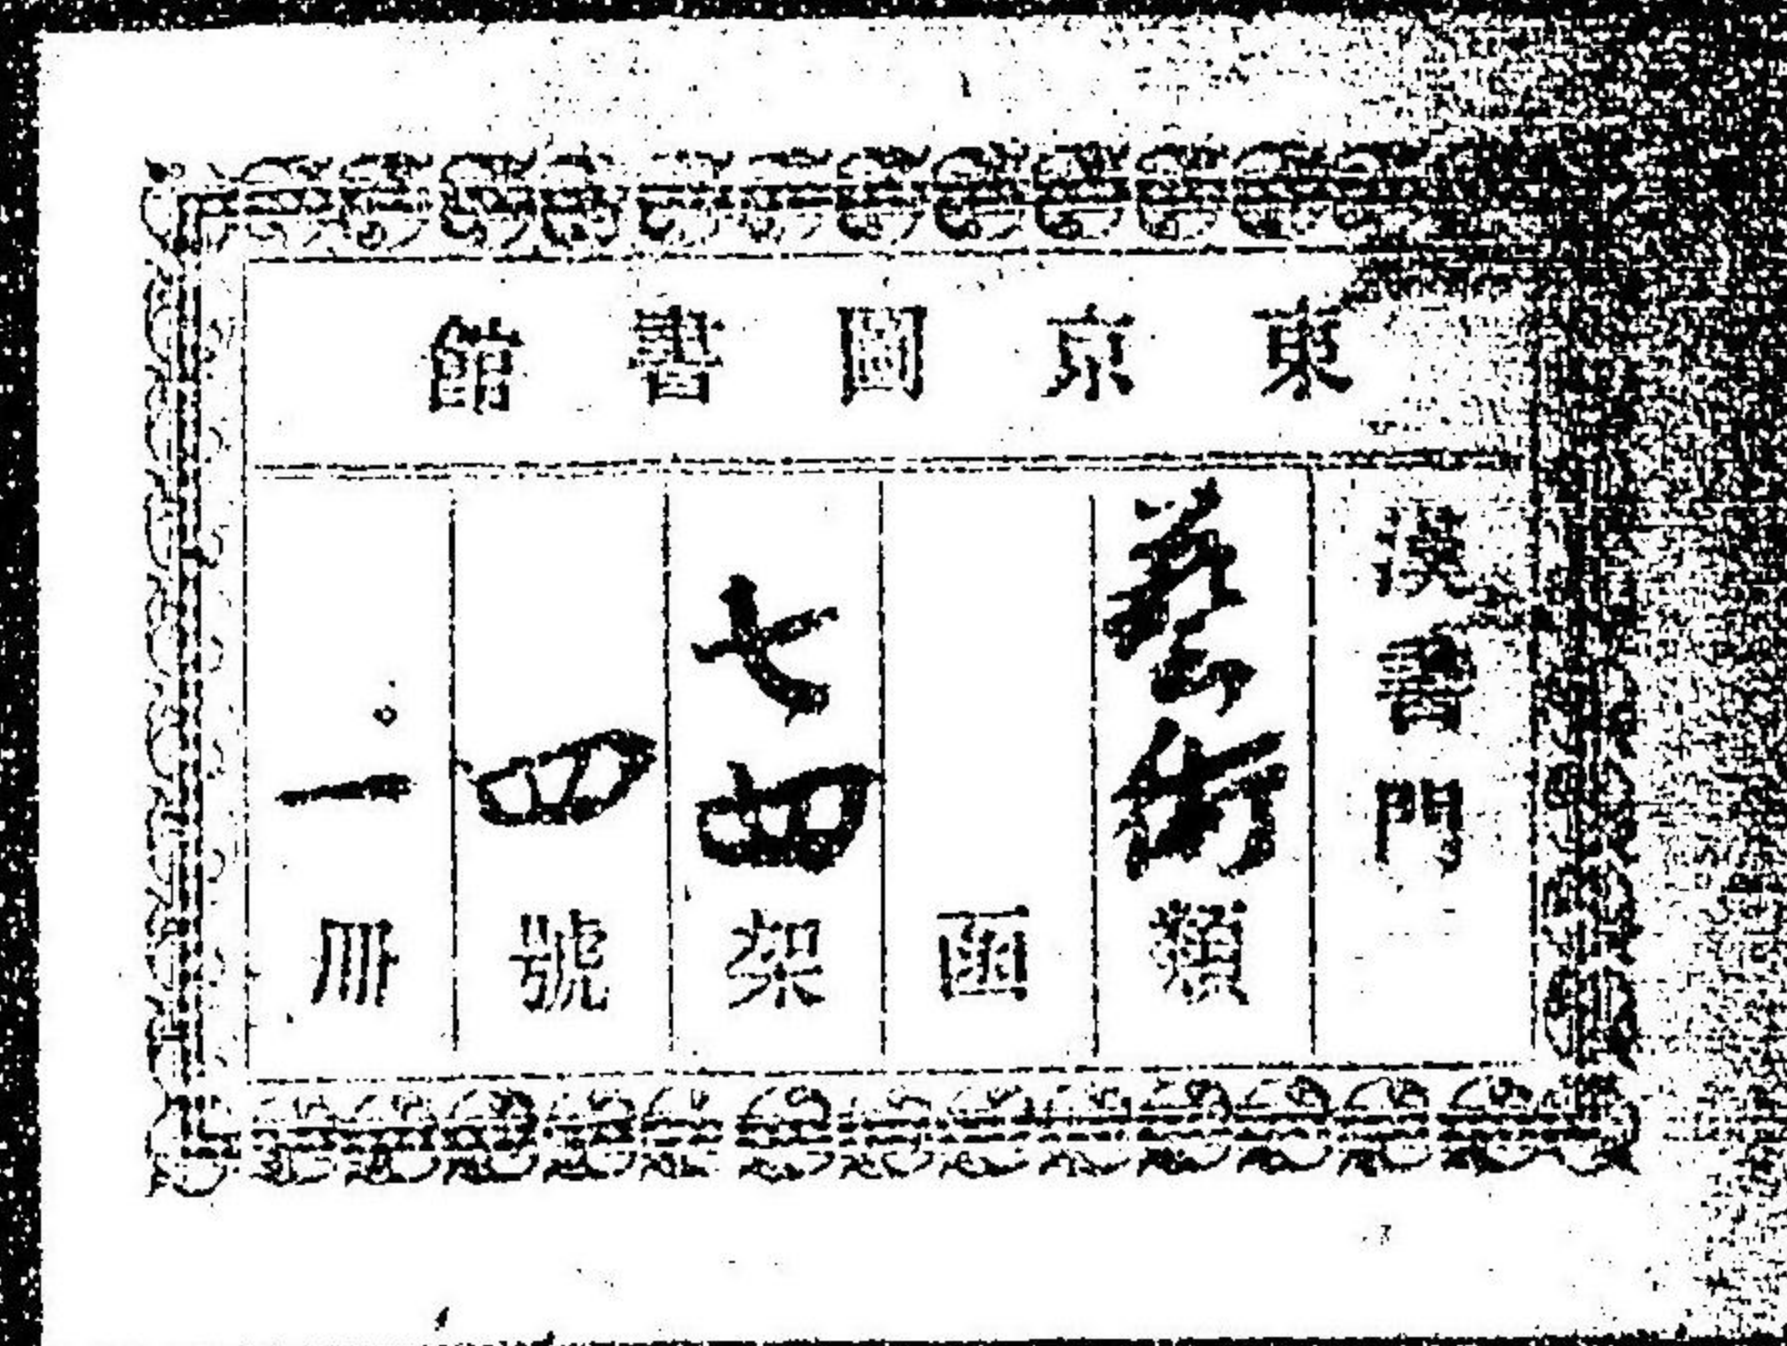 東京圖書館
漢書門
藝術類
函
七四架
四號
一冊